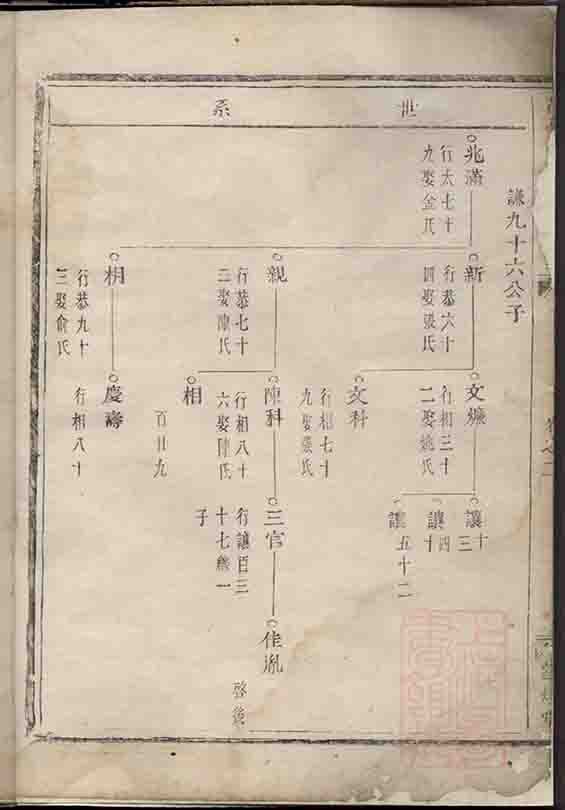 世系
謙九十六公子
兆滿
行太七十
九娶金氏
新
行恭六十
四娶張氏
親
行恭七十
二娶陳氏
行恭九十
三娶俞氏
行相三十
二娶姚氏
文科
行相七十
九娶張氏
陳科
行相八十
六娶陳氏
相
百廿九
慶壽
行相八十
讓十三
讓四十
讓五十二
三官
行讓百三
十七繼一
子
佳胤
啓後